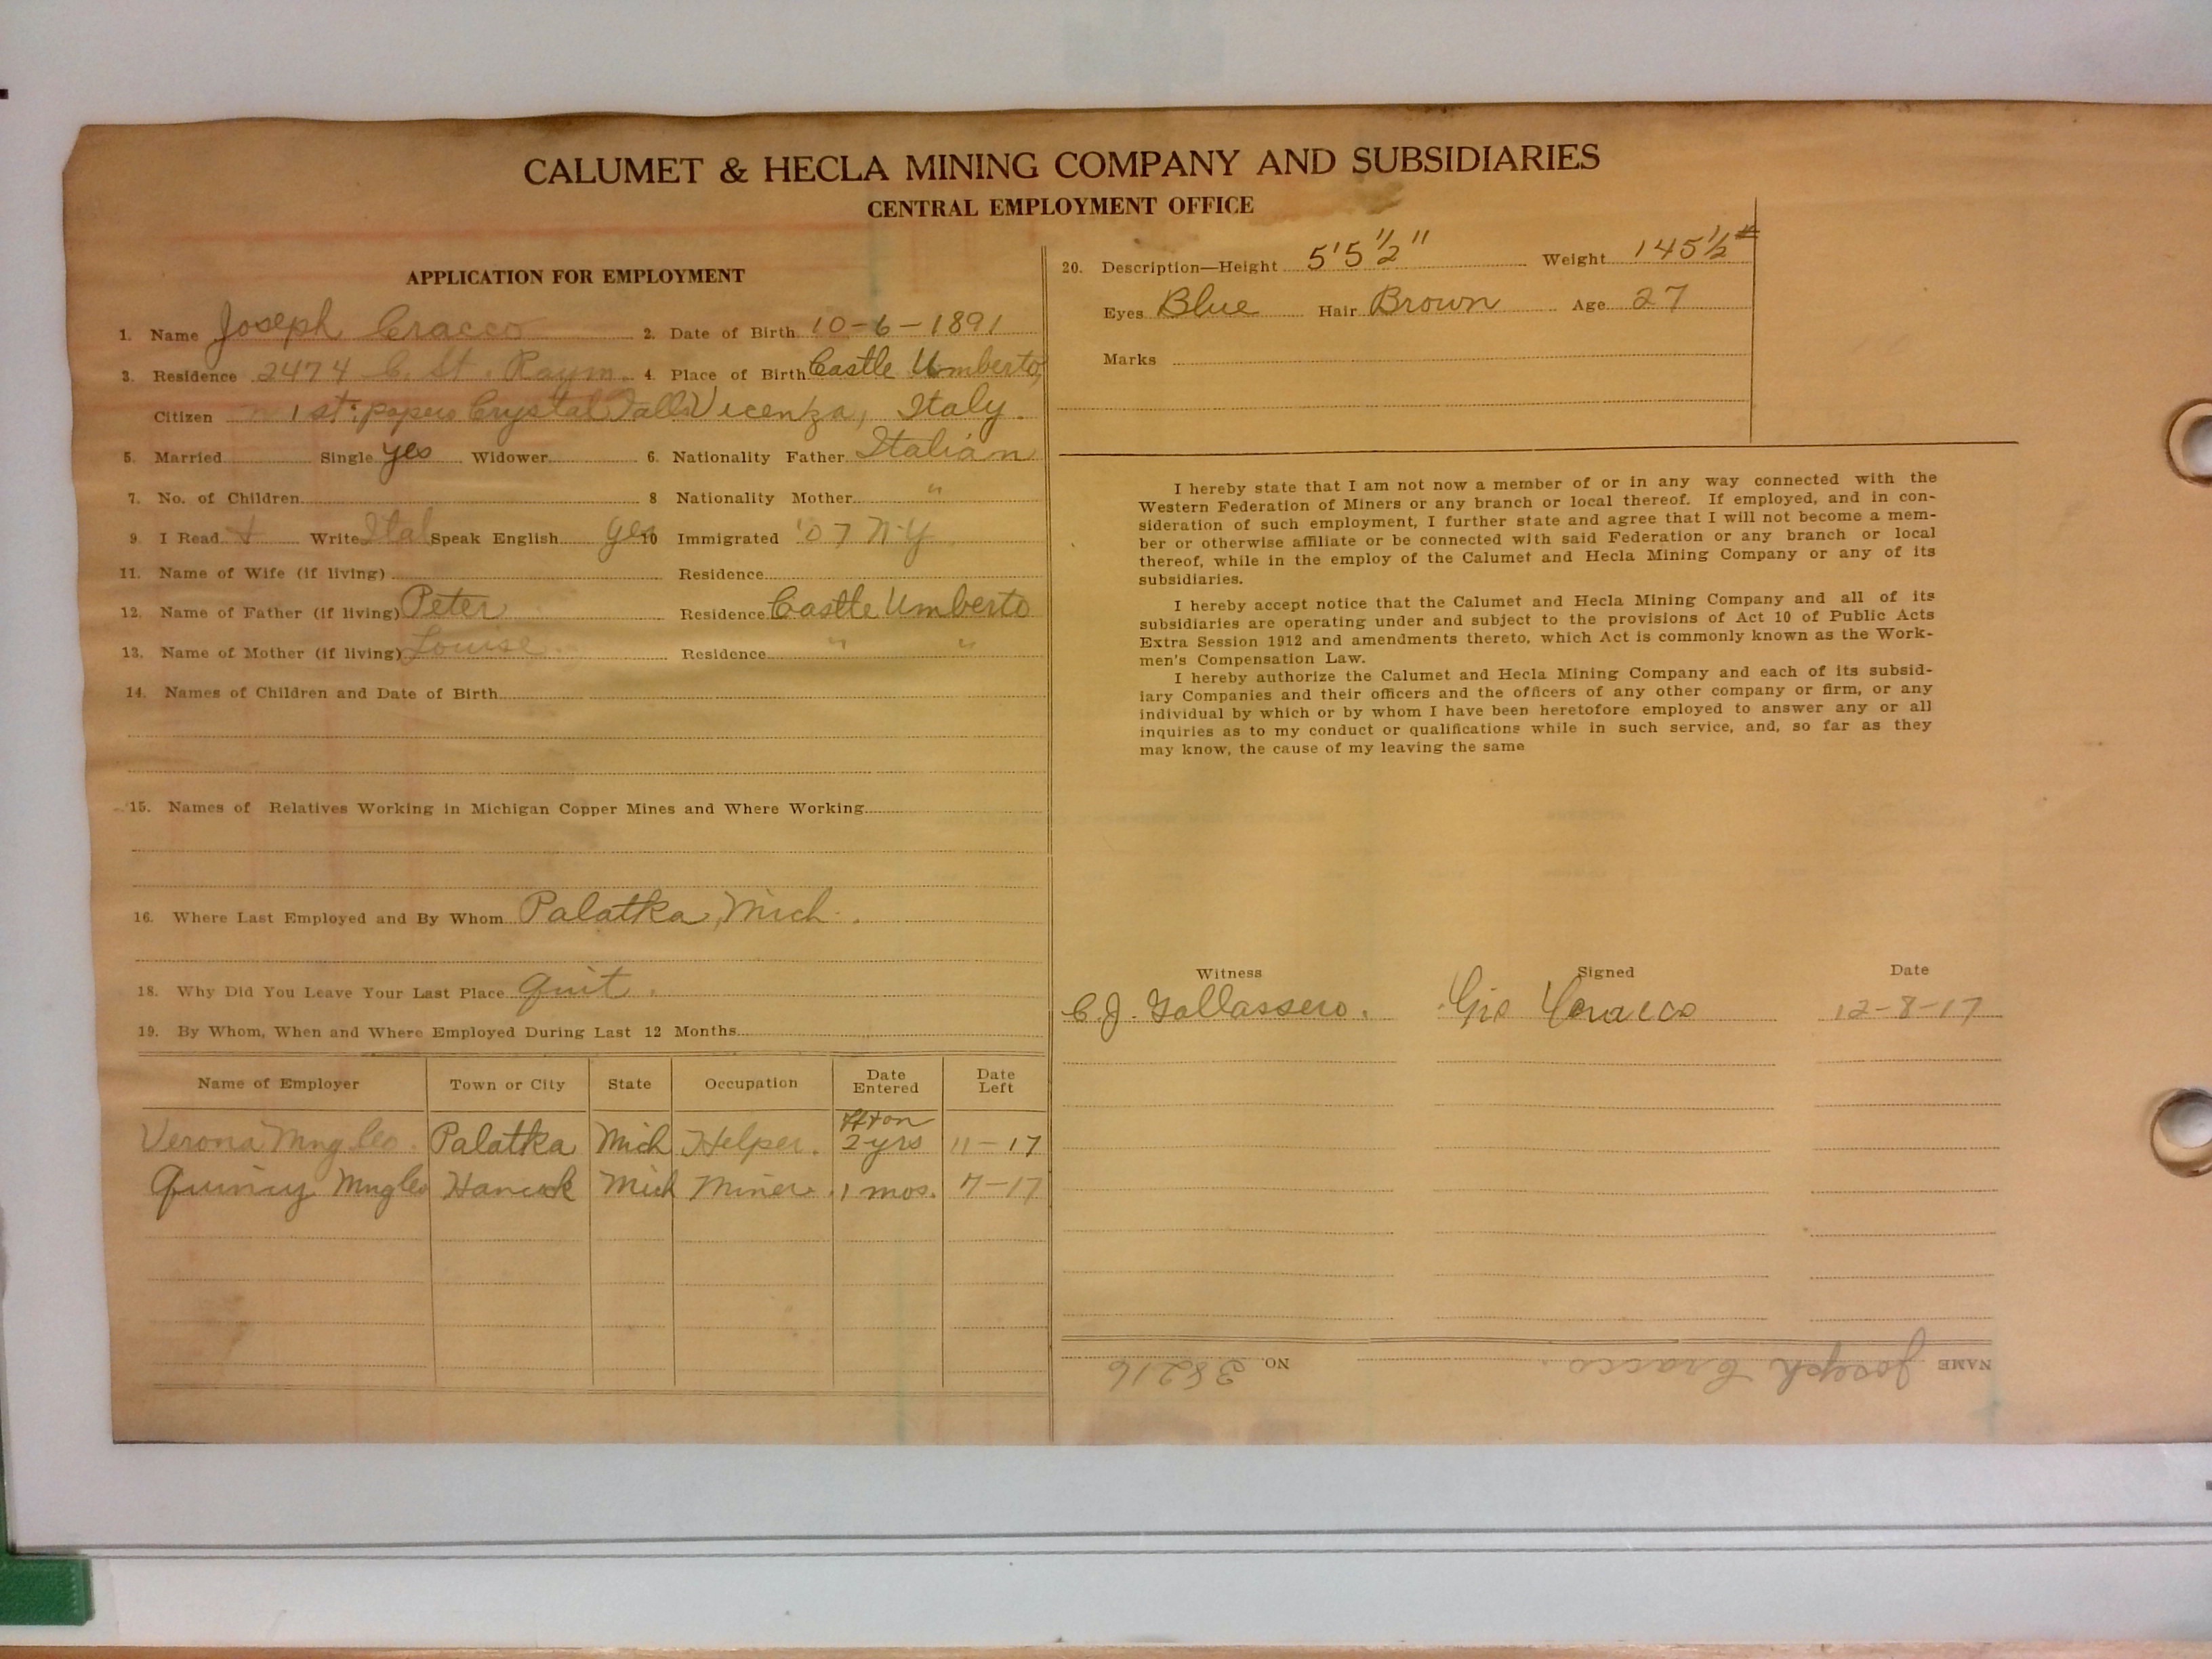 CALUMET & HECLA MINING COMPANY AND SUBSIDIARIES
CENTRAL EMPLOYMENT OFFICE
APPLICATION FOR EMPLOYMENT
1. Name Joseph Cracco 2. Date of Birth 10-6-1891
3. Residence 2474 C. St. Raym. 4. Place of Birth Castle Umberto,
Citizen 1st papers Crystal Falls Vicenza, Italy.
5. Married Single yes Widower 6. Nationality Father Italian
7. No. of Children 8 Nationality Mother "
9. I Read + Write Ital Speak English yes 10 Immigrated '07 N-Y
11. Name of Wife (if living) Residence
12. Name of Father (if living) Peter Residence Castle Umberto
13. Name of Mother (if living) Louise. Residence " "
14. Names of Children and Date of Birth
15. Names of Relatives Working in Michigan Copper Mines and Where Working
16. Where Last Employed and By Whom Palatka, Mich.
18. Why Did You Leave Your Last Place Quit.
19. By Whom, When and Where Employed During Last 12 Months
Name of Employer Town or City State Occupation Date Entered Date Left
Verona Mng Co. Palatka Mich Helper. 2 yrs 11-17
Quincy Mng Co Hancock Mich Miner. 1 mos. 7-17
20. Description—Height 5'5 1/2" Weight 145 1/2 #
Eyes Blue Hair Brown Age 27
Marks
I hereby state that I am not now a member of or in any way connected with the
Western Federation of Miners or any branch or local thereof. If employed, and in con-
sideration of such employment, I further state and agree that I will not become a mem-
ber or otherwise affiliate or be connected with said Federation or any branch or local
thereof, while in the employ of the Calumet and Hecla Mining Company or any of its
subsidiaries.
I hereby accept notice that the Calumet and Hecla Mining Company and all of its
subsidiaries are operating under and subject to the provisions of Act 10 of Public Acts
Extra Session 1912 and amendments thereto, which Act is commonly known as the Work-
men's Compensation Law.
I hereby authorize the Calumet and Hecla Mining Company and each of its subsid-
iary Companies and their officers and the officers of any other company or firm, or any
individual by which or by whom I have been heretofore employed to answer any or all
inquiries as to my conduct or qualifications while in such service, and, so far as they
may know, the cause of my leaving the same
Witness Signed Date
C. J. Gallassero. Gio Cracco 12-8-17
NAME Joseph Cracco. NO 38216